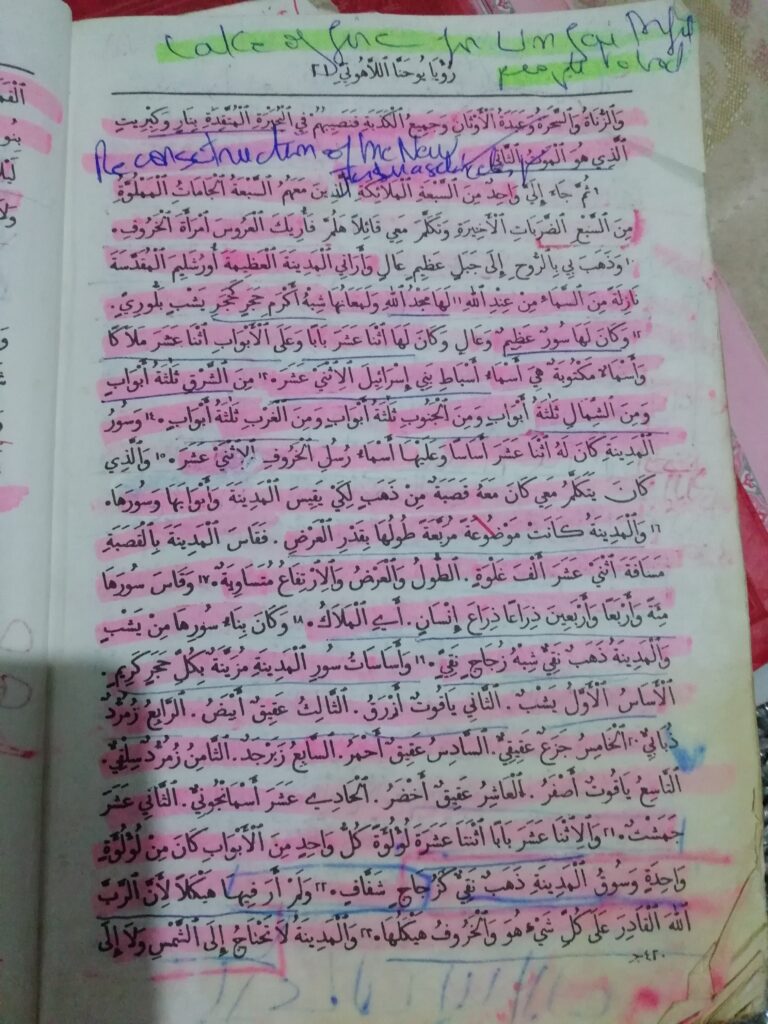 Lake of fire for Unfaithful people
رُؤْيَا يُوحَنَّا ٱللاَّهُوتِيِّ ٢١
وَٱلزُّنَاةُ وَٱلسَّحَرَةُ وَعَبَدَةُ ٱلأَوْثَانِ وَجَمِيعُ ٱلْكَذَبَةِ فَنَصِيبُهُمْ فِي ٱلْبُحَيْرَةِ ٱلْمُتَّقِدَةِ بِنَارٍ وَكِبْرِيتٍ
ٱلَّذِي هُوَ ٱلْمَوْتُ ٱلثَّانِي
Reconstruction of the New
٩ ثُمَّ جَاءَ إِلَيَّ وَاحِدٌ مِنَ ٱلسَّبْعَةِ ٱلْمَلاَئِكَةِ ٱلَّذِينَ مَعَهُمُ ٱلسَّبْعَةُ ٱلْجَامَاتِ ٱلْمَمْلُوَّةِ
مِنَ ٱلسَّبْعِ ٱلضَّرَبَاتِ ٱلأَخِيرَةِ وَتَكَلَّمَ مَعِي قَائِلاً هَلُمَّ فَأُرِيَكَ ٱلْعَرُوسَ ٱمْرَأَةَ ٱلْخَرُوفِ.
١٠ وَذَهَبَ بِي بِٱلرُّوحِ إِلَى جَبَلٍ عَظِيمٍ عَالٍ وَأَرَانِي ٱلْمَدِينَةَ ٱلْعَظِيمَةَ أُورُشَلِيمَ ٱلْمُقَدَّسَةَ
نَازِلَةً مِنَ ٱلسَّمَاءِ مِنْ عِنْدِ ٱللهِ ١١ لَهَا مَجْدُ ٱللهِ وَلَمَعَانُهَا شِبْهُ أَكْرَمِ حَجَرٍ كَحَجَرِ يَشْبٍ بَلُّورِيٍّ.
١٢ وَكَانَ لَهَا سُورٌ عَظِيمٌ وَعَالٍ وَكَانَ لَهَا ٱثْنَا عَشَرَ بَابًا وَعَلَى ٱلأَبْوَابِ ٱثْنَا عَشَرَ مَلاَكًا
وَأَسْمَاءٌ مَكْتُوبَةٌ هِيَ أَسْمَاءُ أَسْبَاطِ بَنِي إِسْرَائِيلَ ٱلاِثْنَيْ عَشَرَ. ١٣ مِنَ ٱلشَّرْقِ ثَلٰثَةُ أَبْوَابٍ
وَمِنَ ٱلشِّمَالِ ثَلٰثَةُ أَبْوَابٍ وَمِنَ ٱلْجَنُوبِ ثَلٰثَةُ أَبْوَابٍ وَمِنَ ٱلْغَرْبِ ثَلٰثَةُ أَبْوَابٍ. ١٤ وَسُورُ
ٱلْمَدِينَةِ كَانَ لَهُ ٱثْنَا عَشَرَ أَسَاسًا وَعَلَيْهَا أَسْمَاءُ رُسُلِ ٱلْخَرُوفِ ٱلاِثْنَيْ عَشَرَ. ١٥ وَٱلَّذِي
كَانَ يَتَكَلَّمُ مَعِي كَانَ مَعَهُ قَصَبَةٌ مِنْ ذَهَبٍ لِكَيْ يَقِيسَ ٱلْمَدِينَةَ وَأَبْوَابَهَا وَسُورَهَا.
١٦ وَٱلْمَدِينَةُ كَانَتْ مَوْضُوعَةً مُرَبَّعَةً طُولُهَا بِقَدْرِ ٱلْعَرْضِ. فَقَاسَ ٱلْمَدِينَةَ بِٱلْقَصَبَةِ
مَسَافَةَ ٱثْنَيْ عَشَرَ أَلْفَ غَلْوَةٍ. ٱلطُّولُ وَٱلْعَرْضُ وَٱلاِرْتِفَاعُ مُتَسَاوِيَةٌ. ١٧ وَقَاسَ سُورَهَا
مِئَةً وَأَرْبَعًا وَأَرْبَعِينَ ذِرَاعًا ذِرَاعَ إِنْسَانٍ. أَيِ ٱلْمَلاَكُ. ١٨ وَكَانَ بِنَاءُ سُورِهَا مِنْ يَشْبٍ
وَٱلْمَدِينَةُ ذَهَبٌ نَقِيٌّ شِبْهُ زُجَاجٍ نَقِيٍّ. ١٩ وَأَسَاسَاتُ سُورِ ٱلْمَدِينَةِ مُزَيَّنَةٌ بِكُلِّ حَجَرٍ كَرِيمٍ.
ٱلأَسَاسُ ٱلأَوَّلُ يَشْبٌ. ٱلثَّانِي يَاقُوتٌ أَزْرَقُ. ٱلثَّالِثُ عَقِيقٌ أَبْيَضُ. ٱلرَّابِعُ زُمُرُّدٌ
ذُبَابِيٌّ. ٢٠ ٱلْخَامِسُ جَزَعٌ عَقِيقِيٌّ. ٱلسَّادِسُ عَقِيقٌ أَحْمَرُ. ٱلسَّابِعُ زَبَرْجَدٌ. ٱلثَّامِنُ زُمُرُّدٌ سِلْقِيٌّ.
ٱلتَّاسِعُ يَاقُوتٌ أَصْفَرُ. ٱلْعَاشِرُ عَقِيقٌ أَخْضَرُ. ٱلْحَادِي عَشَرَ أَسْمَانْجُونِيٌّ. ٱلثَّانِي عَشَرَ
جَمَشْتٌ. ٢١ وَٱلاِثْنَا عَشَرَ بَابًا ٱثْنَتَا عَشَرَةَ لُؤْلُؤَةً كُلُّ وَاحِدٍ مِنَ ٱلأَبْوَابِ كَانَ مِنْ لُؤْلُؤَةٍ
وَاحِدَةٍ وَسُوقُ ٱلْمَدِينَةِ ذَهَبٌ نَقِيٌّ كَزُجَاجٍ شَفَّافٍ. ٢٢ وَلَمْ أَرَ فِيهَا هَيْكَلاً لأَنَّ ٱلرَّبَّ
ٱللهَ ٱلْقَادِرَ عَلَى كُلِّ شَيْءٍ هُوَ وَٱلْخَرُوفُ هَيْكَلُهَا. ٢٣ وَٱلْمَدِينَةُ لاَ تَحْتَاجُ إِلَى ٱلشَّمْسِ وَلاَ إِلَى
٤٢٠